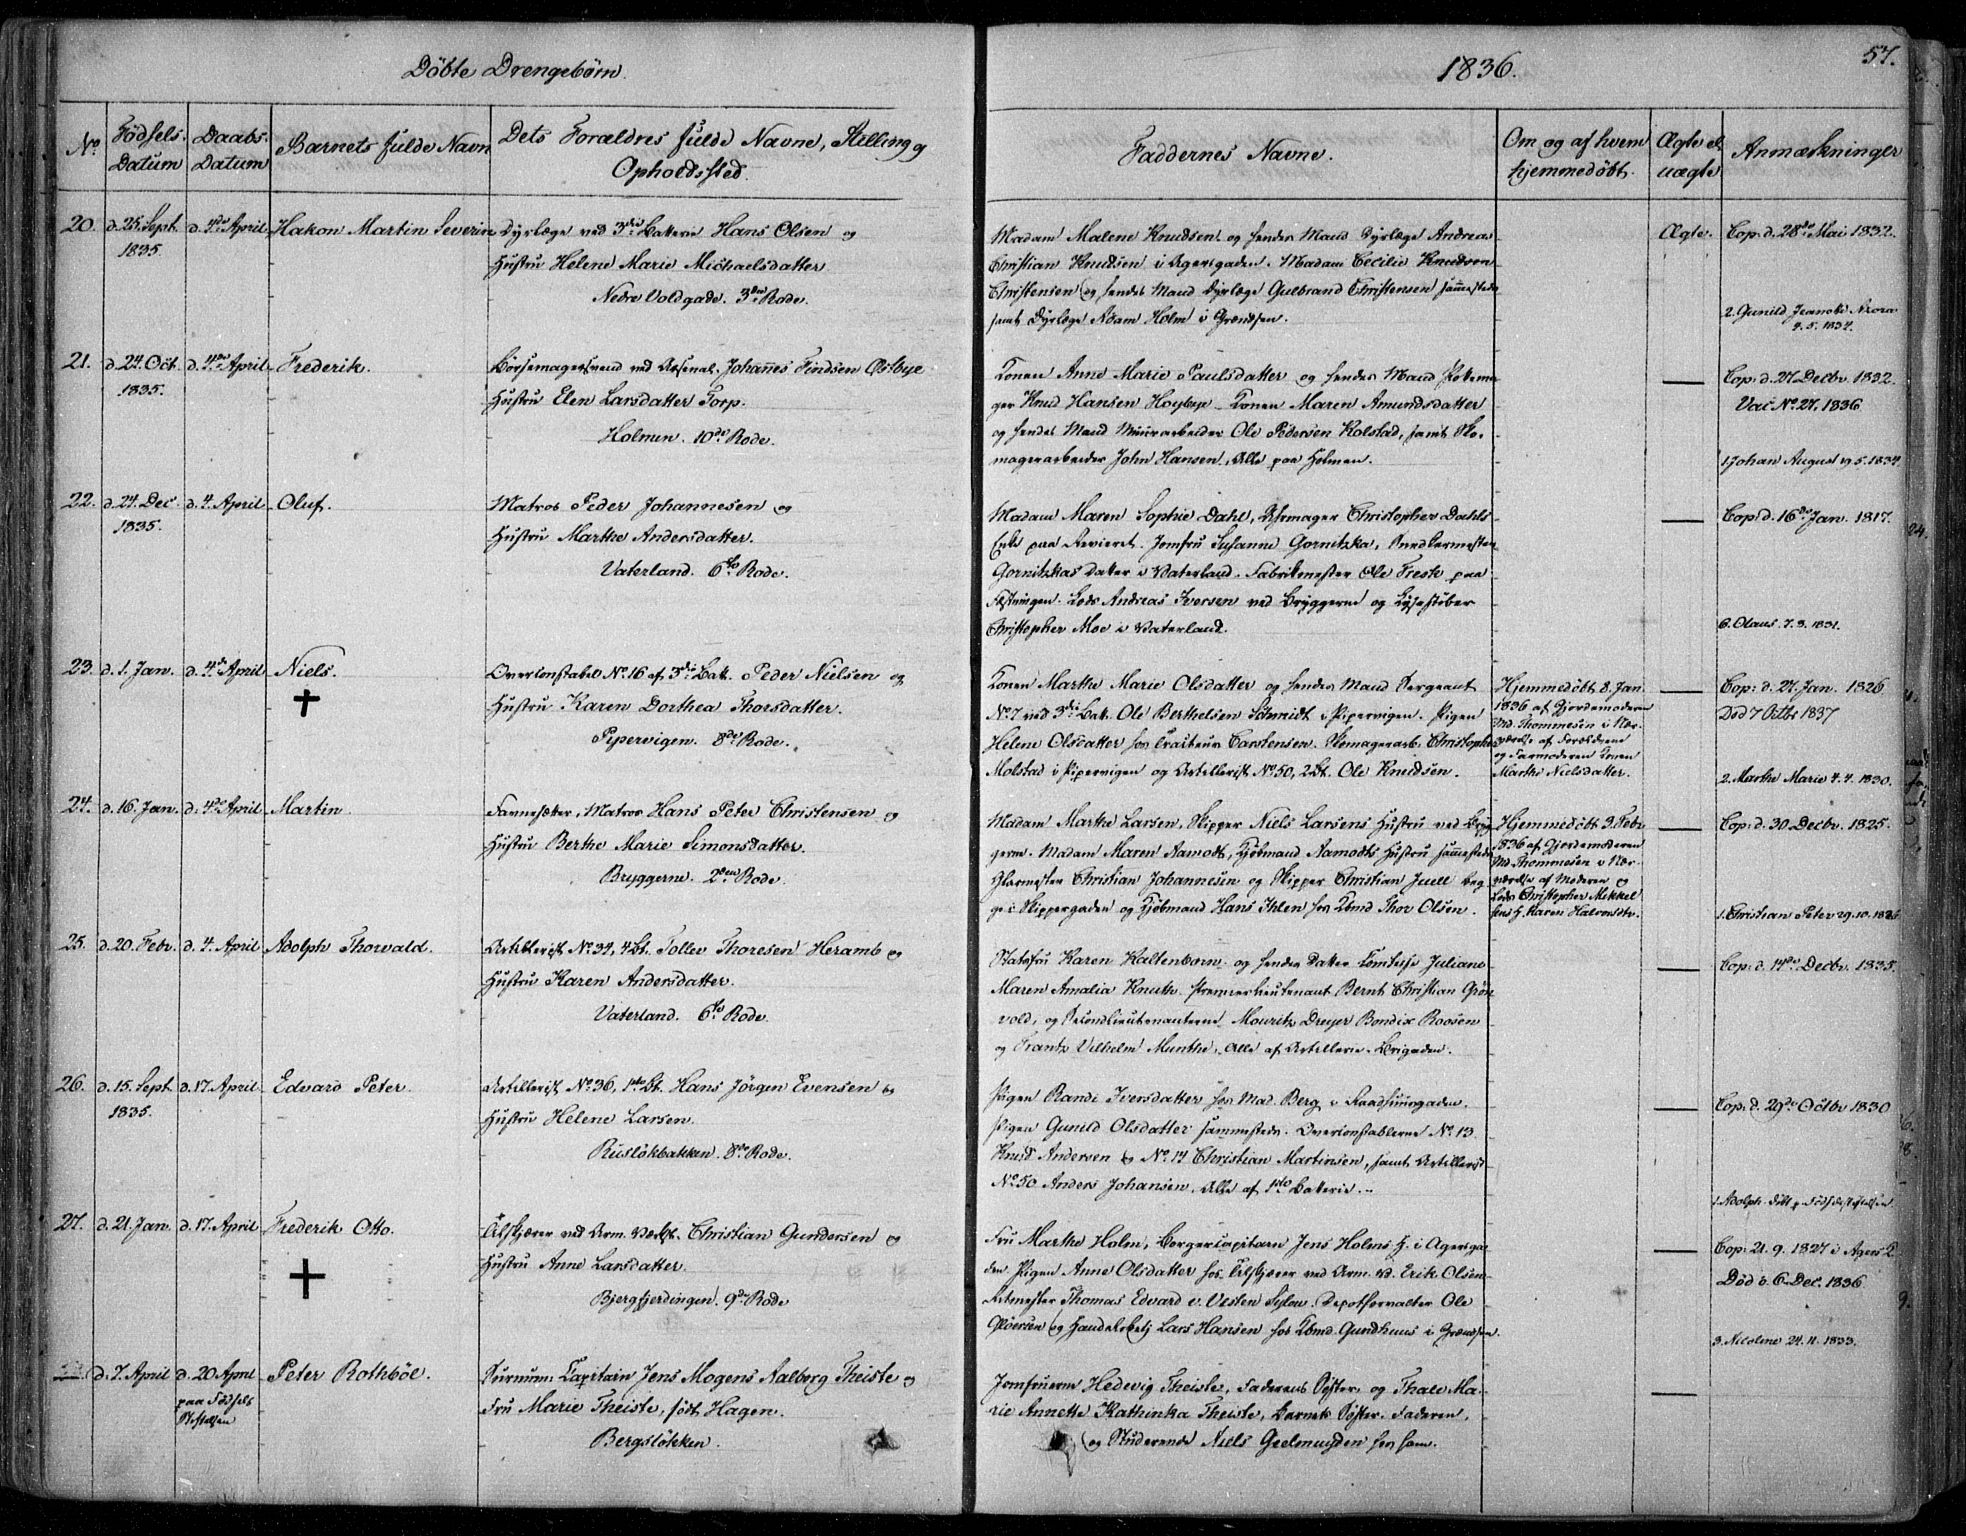 Döbte Drengebörn.
1836.
57.
No.
Födsels-Datum
Daabs-Datum
Barnets fulde Navn
Dets Forældres fulde Navne, Stilling og Opholdssted.
Faddernes Navne.
Om og af hvem hjemmedöbt.
Ægte el. uægte
Anmærkninger
20. d. 25. Sept. 1835. d. 4de April Hakon Martin Severin
Dyrlæge ved 3die Batterie Hans Olsen og
Hustru Helene Marie Michaelsdatter.
Nedre Voldgade. 3die Rode.
Madam Malene Knudsen og hendes Mand Dyrlæge Andreas
Christian Knudsen i Agersgaden. Madam Cecilie Knudsen
Christensen og hendes Mand Dyrlæge Gulbrand Christensen sammesteds
samt Dyrlæge Adam Holm i Grændsen.
Ægte.
Cop. d. 28de Mai 1832.
2. Gunild Jeanette Arora
9. 5. 1834.
21. d. 24. Oct. 1835. d. 4de April Frederik.
Börsemagersvend ved Arsenal. Johannes Findsen Östbye
Hustru Elen Larsdatter Torp.
Holmen. 10de Rode.
Konen Anne Marie Paulsdatter og hendes Mand Skoma-
ger Knud Hansen Hoybye. Konen Maren Amundsdatter
og hendes Mand Muurarbeider Ole Pedersen Kolstad, samt Sko-
magerarbeider John Hansen. Alle paa Holmen.
—
Cop. d. 27. Decbr. 1832.
Vac. No. 27, 1836
1 Johan August 19. 5. 1834.
22. d. 24. Dec. 1835. d. 4. April Oluf.
Matros Peder Johannesen og
Hustru Marthe Andersdatter.
Vaterland. 6te Rode.
Madam Maren Sophie Dahl, Uhrmager Christopher Dahls
Enke paa Revieret. Jomfru Susanne Gornitzka, Snedkermester
Gornitzkas Datter i Vaterland. Fabrikmester Ole Treste paa
Fæstningen. Lods Andreas Iversen ved Bryggerne og Lysestöber
Christopher Moe i Vaterland.
—
Cop. d. 16de Jan. 1817.
6. Olaus. 7. 3. 1831.
23. d. 1. Jan. d. 4de April Niels.
Overconstabel No. 16 af 3die Batt. Peder Nielsen og
Hustru Karen Dorthea Thorsdatter.
Pipervigen. 8de Rode.
Konen Marthe Marie Olsdatter og hendes Mand Sergeant
No. 7 ved 3die Batt. Ole Berthelsen Schmidt i Pipervigen. Pigen
Helene Olsdatter hos Traiteur Carstensen. Skomagerarb. Christopher
Molstad i Pipervigen og Artillerist No. 50, 2 Bt. Ole Knudsen.
Hjemmedöbt 8. Jan.
1836 af Gjordemoderen
Md. Thommesen i Nær-
værelse af Forældrene
og Farmoderen Konen
Marthe Nielsdatter.
—
Cop. d. 27. Jan. 1826
Död 7 Octbr 1837
2. Marthe Marie 4. 4. 1830.
24. d. 16. Jan. d. 4de April Martin.
Favnesætter, Matros Hans Peter Christensen og
Hustru Berthe Marie Simonsdatter.
Bryggerne. 2den Rode.
Madam Marthe Larsen, Skipper Niels Larsens Hustru ved Bryg-
gerne. Madam Maren Aamodt, Kjöbmand Aamodts Hustru sammesteds
Glarmester Christian Johannesen og Skipper Christian Juell beg-
ge i Skippergaden og Kjöbmand Hans Ihlen hos Kbmd Thor Olsen.
Hjemmedöbt 3. Febr
1836 af Gjordemoderen
Md. Thommesen i Nær-
værelse af Moderen og
Lods Christopher Mikkel
sens H. Karen Halvorsdtr.
—
Cop. d. 30 Decbr. 1825.
1. Christian Peter 29. 10. 1826
25. d. 20. Febr. d. 4. April Adolph Thorvald.
Artillerist No. 34, 4 Bt. Tollev Thoresen Heramb og
Hustru Karen Andersdatter.
Vaterland. 6te Rode.
Statsfru Karen Kaltenborn og hendes Datter Comtesse Juliane
Maren Amalia Knuth. Premierlieutenant Bernt Christian Grön
vold, og Secondlieutenanterne Mouritz Dreyer Bondix Roosen
og Frantz Vilhelm Munthe. Alle af Artillerie-Brigaden.
—
Cop. d. 14de Decbr. 1835.
26. d. 15. Sept. 1835. d. 17. April Edvard Peter.
Artillerist No. 36, 1ste Bt. Hans Jörgen Evensen og
Hustru Helene Larsen.
Ruslökbakken. 8de Rode.
Pigen Randi Iversdatter hos Mad. Berg i Raadhuusgaden.
Pigen Gunild Olsdatter sammesteds. Overconstablerne No. 13
Knud Andersen og No. 14 Christian Martinsen, samt Artillerist
No. 50 Anders Johansen. Alle af 1ste Batterie.
—
Cop. d. 29de Octbr 1830
1. Adolph döbt p. Födselsstiftelsen
27. d. 21. Jan. d. 17. April Frederik Otto.
Ælskjærer ved Arm. Værkst. Christian Gundersen og
Hustru Anne Larsdatter.
Bjergfjerdingen. 9de Rode
Fru Marthe Holm, Borgercapitain Jens Holms H. i Agersga-
den. Pigen Anne Olsdatter hos Filskjærer ved Arm. V. Erik Olsen.
Artmester Thomas Edvard v. Vesten Sylow. Depotforvalter Ole
Sjöersen og Handelsbetj. Lars Hansen hos Kbmd. Gundhuus i Grændsen.
—
Cop. 21. 9. 1827 i Agers K.
Död d. 6. Dec. 1836
3. Nicoline 24. 11. 1833.
d. 7. April d. 20 April
paa Födsels
Stiftelsen
Peter Rothböl.
Surnum: Capitain Jens Mogens Aalborg Theiste og
Fru Marie Theiste, födt Hagen.
Bergslökken.
Jomfruerne Hedevig Theiste, Faderens Söster, og Thale Ma-
rie Annette Kathinka Theiste, Barnets Söster. Faderen,
og Studerende Niels Geelmuyden hos ham.
—